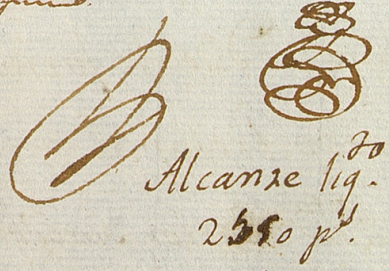 Alcanze liq.do
2310 ps.